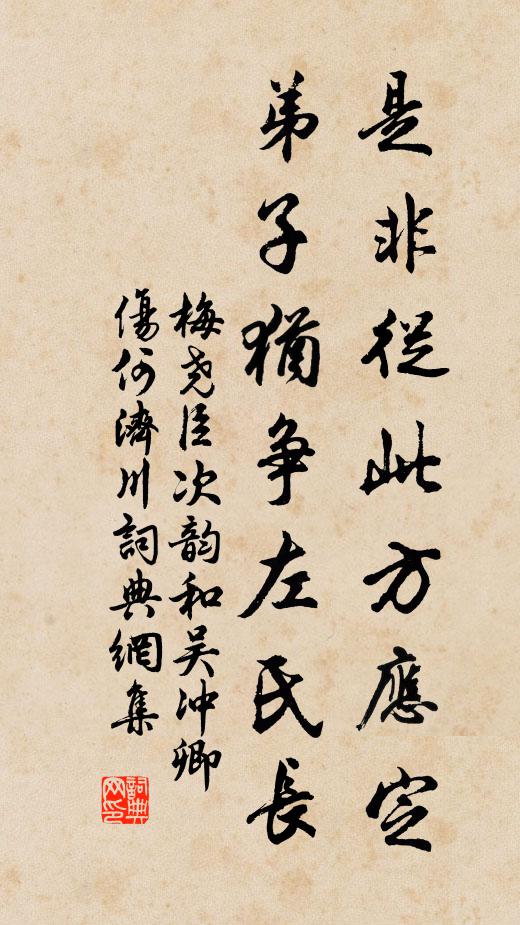 是非從此方應定
弟子猶爭左氏長
梅堯臣次韵和吴沖卿
傷何濟川詞典網集
詞典网印